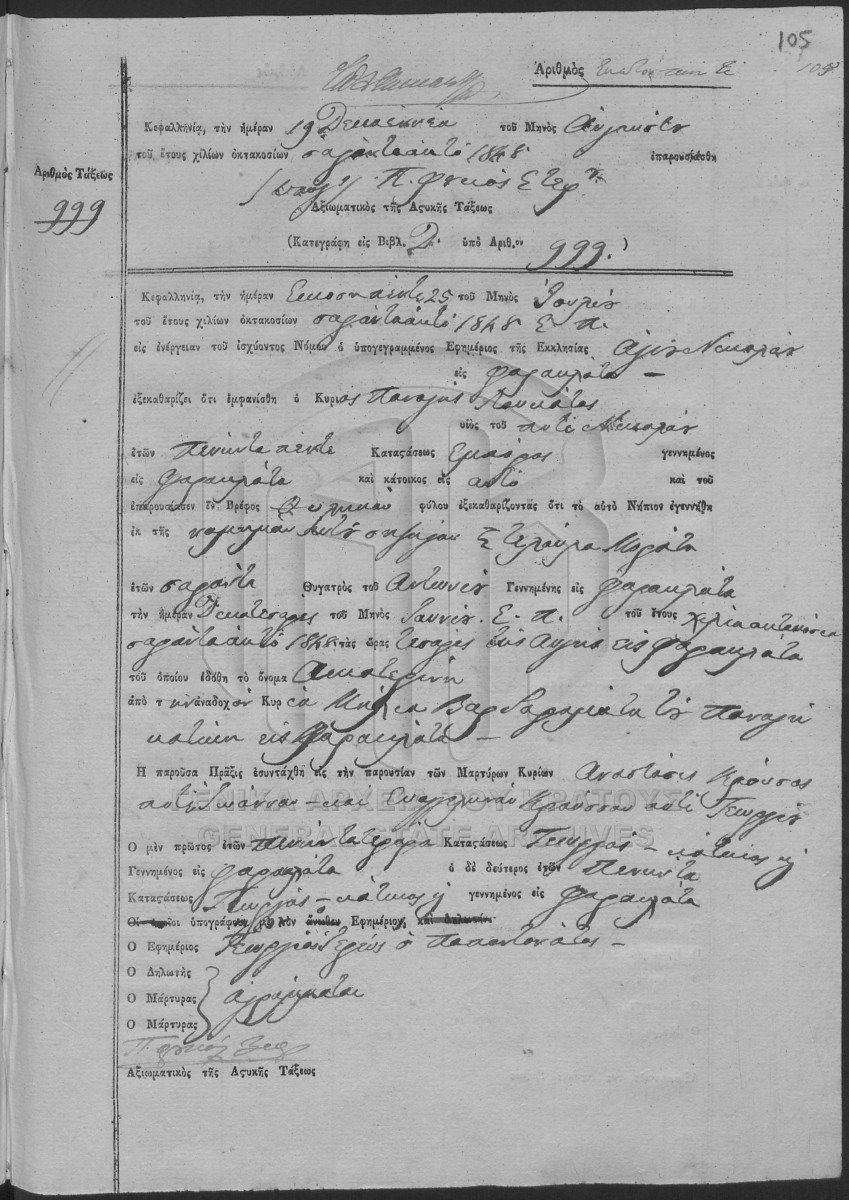 105
Ἀριθμὸς Ἑκατὸν
105
Κεφαλληνίᾳ, τὴν ἡμέραν 19 Δεκαεννέα τοῦ Μηνὸς Αὐγούστου
τοῦ ἔτους χιλίων ὀκτακοσίων σαράντα ὀκτὼ 1848 ἐπαρουσιάσθη
Ἀριθμὸς Τάξεως
999
Ἀξιωματικὸς τῆς Ἀςυκῆς Τάξεως
(Κατεγράφη εἰς Βιβλ. Δ. ὑπὸ Ἀριθ.ον 999.)
Κεφαλληνίᾳ, τὴν ἡμέραν Εἰκοσιπέντε 25 τοῦ Μηνὸς Ἰουλίου
τοῦ ἔτους χιλίων ὀκτακοσίων σαράντα ὀκτὼ 1848 Ε. Π.
εἰς ἐνέργειαν τοῦ ἰσχύοντος Νόμου ὁ ὑπογεγραμμένος Ἐφημέριος τῆς Ἐκκλησίας Ἁγίου Νικολάου
εἰς Φαρακλάτα –
ἐξεκαθαρίζει ὅτι ἐμφανίσθη ὁ Κυριος Παναγῆς Λουκάτος
υἱὸς τοῦ ποτὲ Νικολάου
ἐτῶν πενήντα πέντε Καταςάσεως Ἔμπορος γεννημένος
εἰς Φαρακλάτα καὶ κάτοικος εἰς αὐτὸ καὶ τοῦ
ἐπαρουσίασεν ἓν Βρέφος θυληκοῦ φύλου ἐξεκαθαρίζοντας ὅτι τὸ αὐτὸ Νήπιον ἐγεννήθη
ἐκ τῆς νομίμου αὐτοῦ συζύγου Στυλούλα Μοράτη
ἐτῶν σαράντα Θυγατρὸς τοῦ Ἀντωνίου Γεννημένης εἰς Φαρακλάτα
τὴν ἡμέραν Δεκατέσσαρες τοῦ Μηνὸς Ἰουνίου. Ε. Π. τοῦ ἔτους χίλια οκτακόσια
σαράντα οκτὼ 1848 τὰς ὥρας τέσσαρες τῆς Αὐγῆς εἰς Φαρακλάτα
τοῦ ὁποίου ἐδόθη τὸ ὄνομα Αἰκατερίνη
ἀπὸ τ ην ἀνάδοχον Κυρ ία Μηλιά Βαρδαραμάτα τοῦ Παναγῆ
κατοίκη εἰς Φαρακλάτα –
Ἡ παροῦσα Πρᾶξις ἐσυντάχθη εἰς τὴν παρουσίαν τῶν Μαρτύρων Κυρίων Αναστάσις Κρούσος
ποτὲ Ἰωάννου – καὶ Ευαγγελινοῦ Κρούσου ποτὲ Γεωργίου
Ὁ μὲν πρῶτος ἐτῶν πενήντα τέσσαρα Καταςάσεως Γεωργὸς – κάτοικος ἢ
Γεννημένος εἰς Φαρακλάτα ὁ δὲ δεύτερος ἐτῶν πενήντα
Καταςάσεως Γεωργὸς – κάτοικος ἢ γεννημένος εἰς Φαρακλάτα
Οἱ ὁποῖοι ὑπογράφουν μὲ τὸν ἄνωθεν Ἐφημέριον, καὶ Δηλωτὴν
Ὁ Ἐφημέριος Γεώργιος Ἱερεὺς ὁ Παπαντονάτος –
Ὁ Δηλωτὴς
Ὁ Μάρτυρας ἀγράμματοι
Ὁ Μάρτυρας
Ἀξιωματικὸς τῆς Ἀςυκῆς Τάξεως
ΓΕΝΙΚΑ ΑΡΧΕΙΑ ΤΟΥ ΚΡΑΤΟΥΣ
GENERAL STATE ARCHIVES